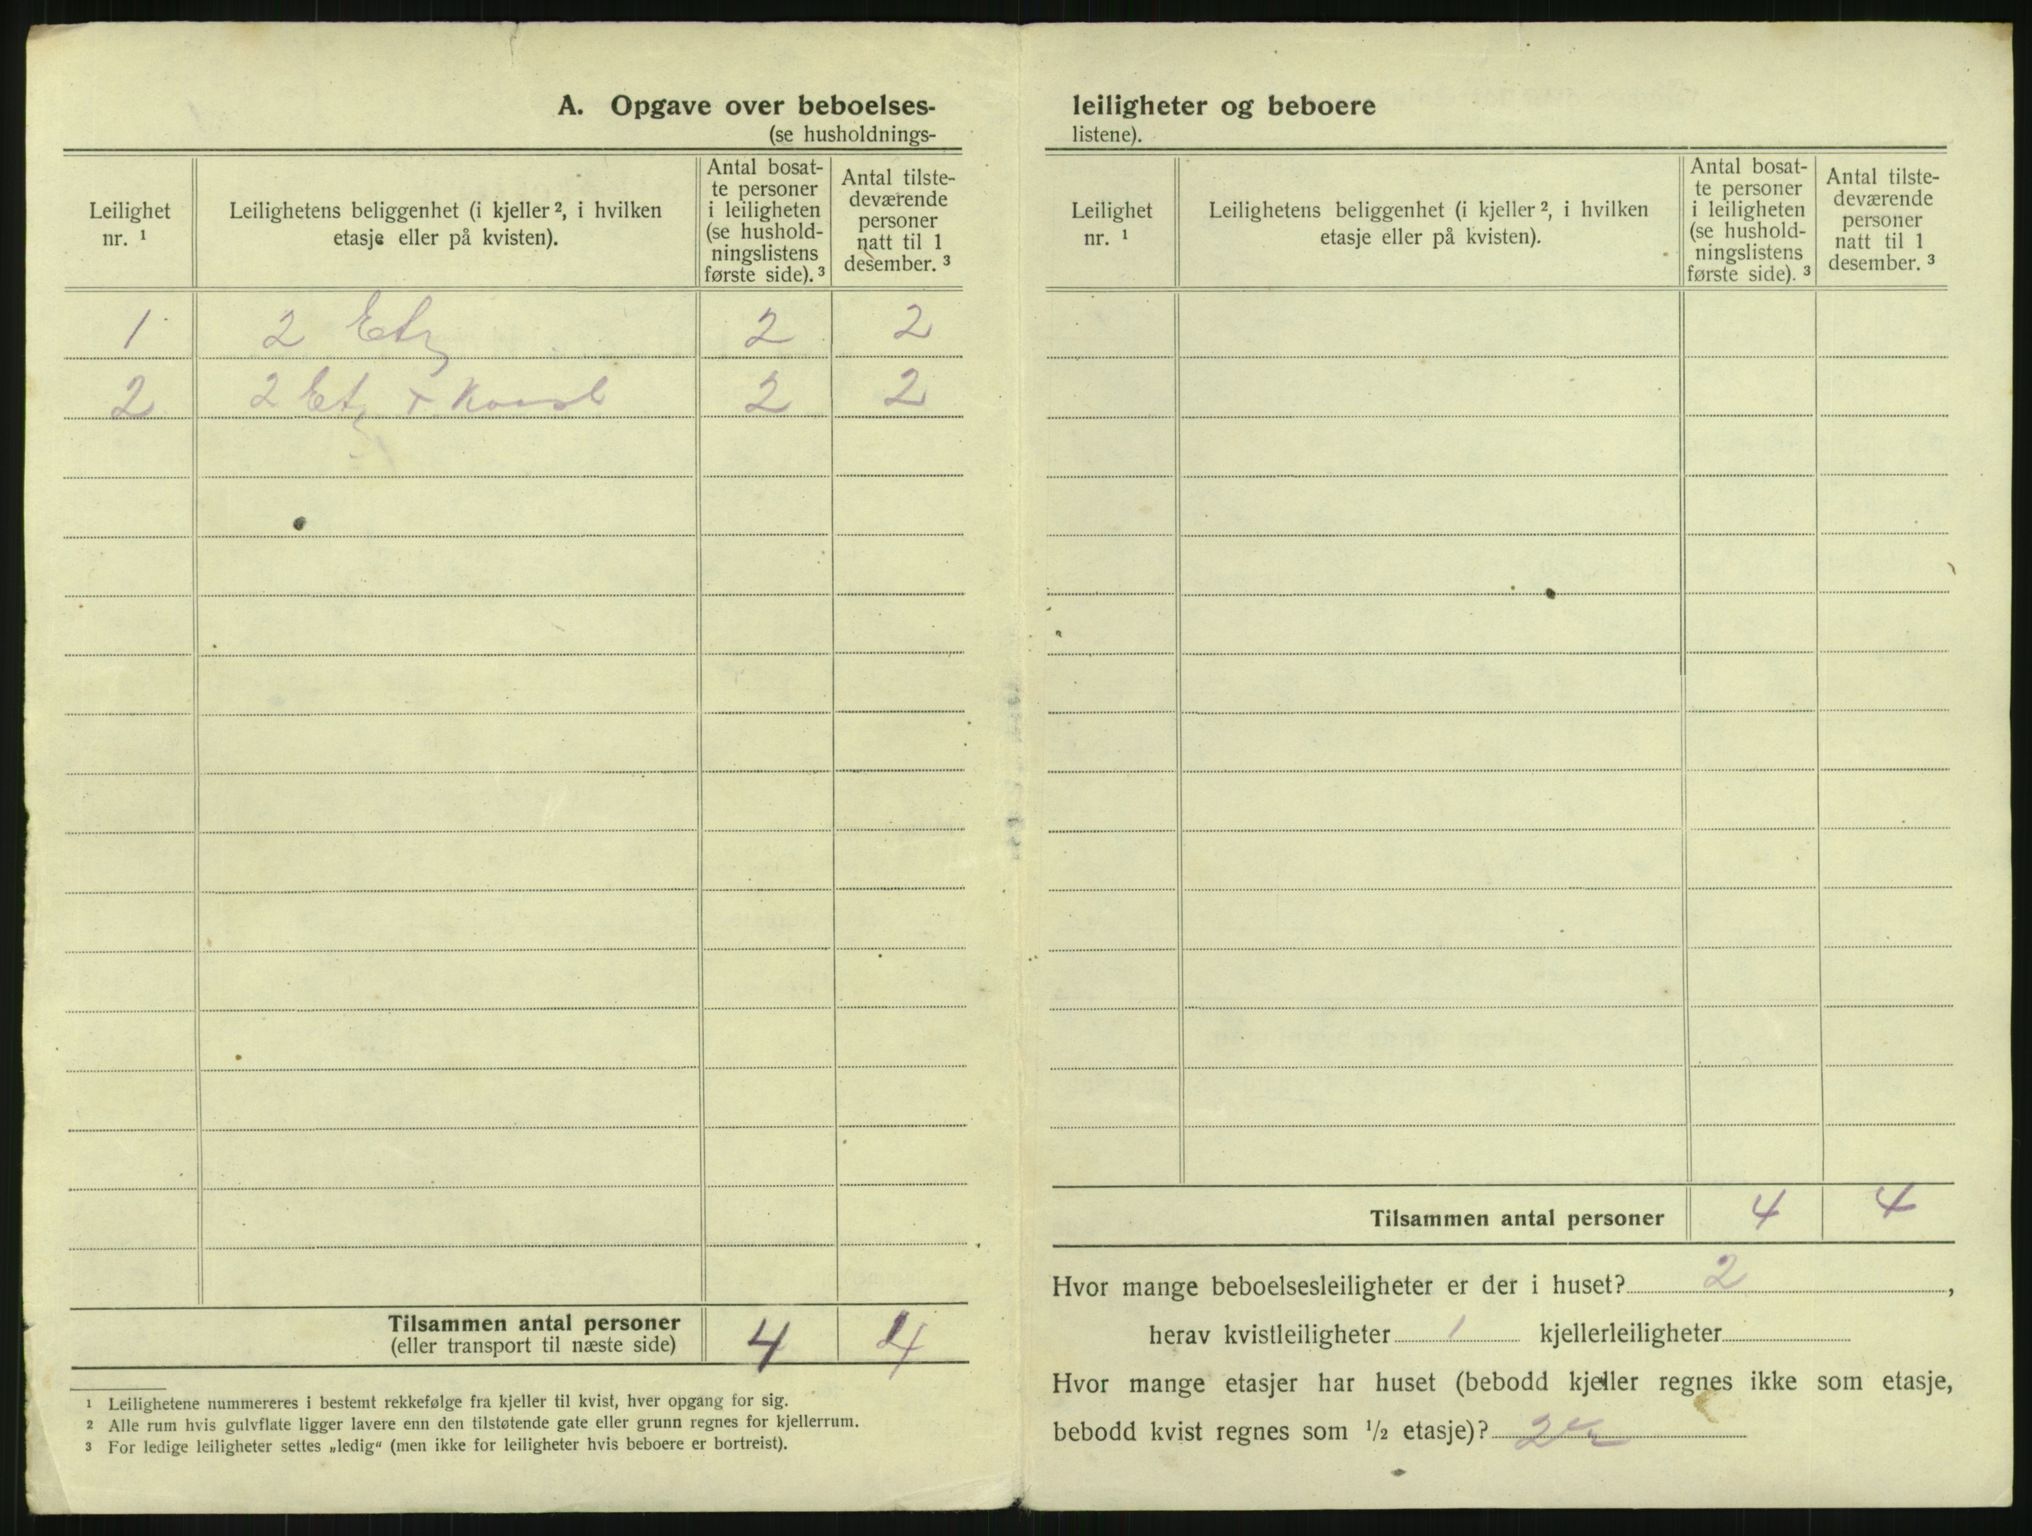 A. Opgave over beboelses-
(se husholdnings-
Leilighet nr. ¹
Leilighetens beliggenhet (i kjeller ², i hvilken etasje eller på kvisten).
Antal bosat-
te personer
i leiligheten
(se hushold-
ningslistens
første side). ³
Antal tilste-
deværende
personer
natt til 1
desember. ³
1 2 Etg 2 2
2 2 Etg + Kvist 2 2
Tilsammen antal personer 4 4
(eller transport til næste side)
¹ Leilighetene nummereres i bestemt rekkefølge fra kjeller til kvist, hver opgang for sig.
² Alle rum hvis gulvflate ligger lavere enn den tilstøtende gate eller grunn regnes for kjellerrum.
³ For ledige leiligheter settes „ledig" (men ikke for leiligheter hvis beboere er bortreist).
leiligheter og beboere
listene).
Leilighet nr. ¹
Leilighetens beliggenhet (i kjeller ², i hvilken etasje eller på kvisten).
Antal bosat-
te personer
i leiligheten
(se hushold-
ningslistens
første side). ³
Antal tilste-
deværende
personer
natt til 1
desember. ³
Tilsammen antal personer 4 4
Hvor mange beboelsesleiligheter er der i huset? 2 ,
herav kvistleiligheter 1 kjellerleiligheter
Hvor mange etasjer har huset (bebodd kjeller regnes ikke som etasje,
bebodd kvist regnes som ½ etasje)? 2½